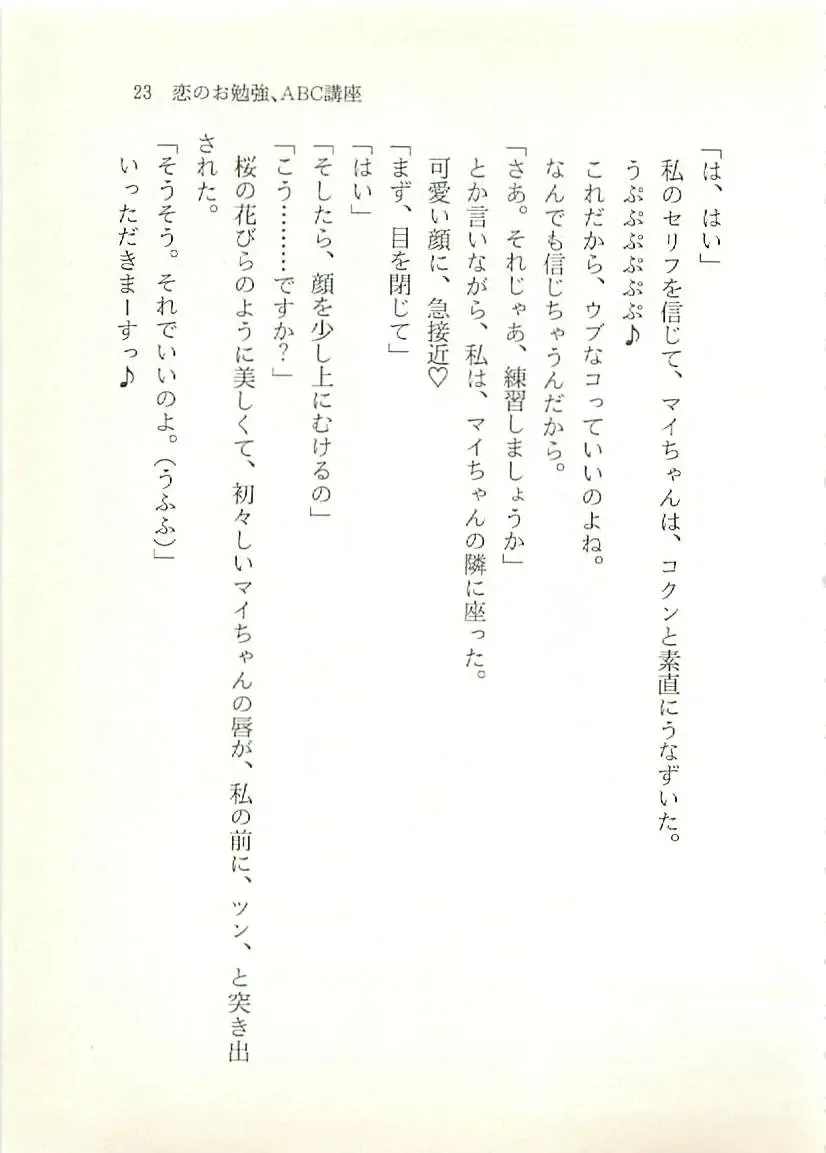 23 恋のお勉強、ABC講座
「は、はい」
私のセリフを信じて、マイちゃんは、コクンと素直にうなずいた。
うぷぷぷぷぷぷ♪
これだから、ウブなコっていいのよね。
なんでも信じちゃうんだから。
「さあ。それじゃあ、練習しましょうか」
とか言いながら、私は、マイちゃんの隣に座った。
可愛い顔に、急接近♡
「まず、目を閉じて」
「はい」
「そしたら、顔を少し上にむけるの」
「こう………ですか？」
桜の花びらのように美しくて、初々しいマイちゃんの唇が、私の前に、ツン、と突き出
された。
「そうそう。それでいいのよ。（うふふ）」
いっただきまーすっ♪